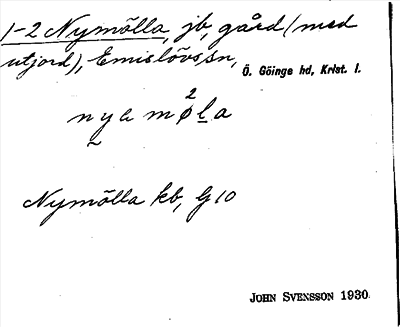 1-2 Nymölla, jb, gård (med
utjord), Emislövs sn,
Ö. Göinge hd, Krist. l.
2
nya møla
Nymölla kb, G 10
JOHN SVENSSON 1930.